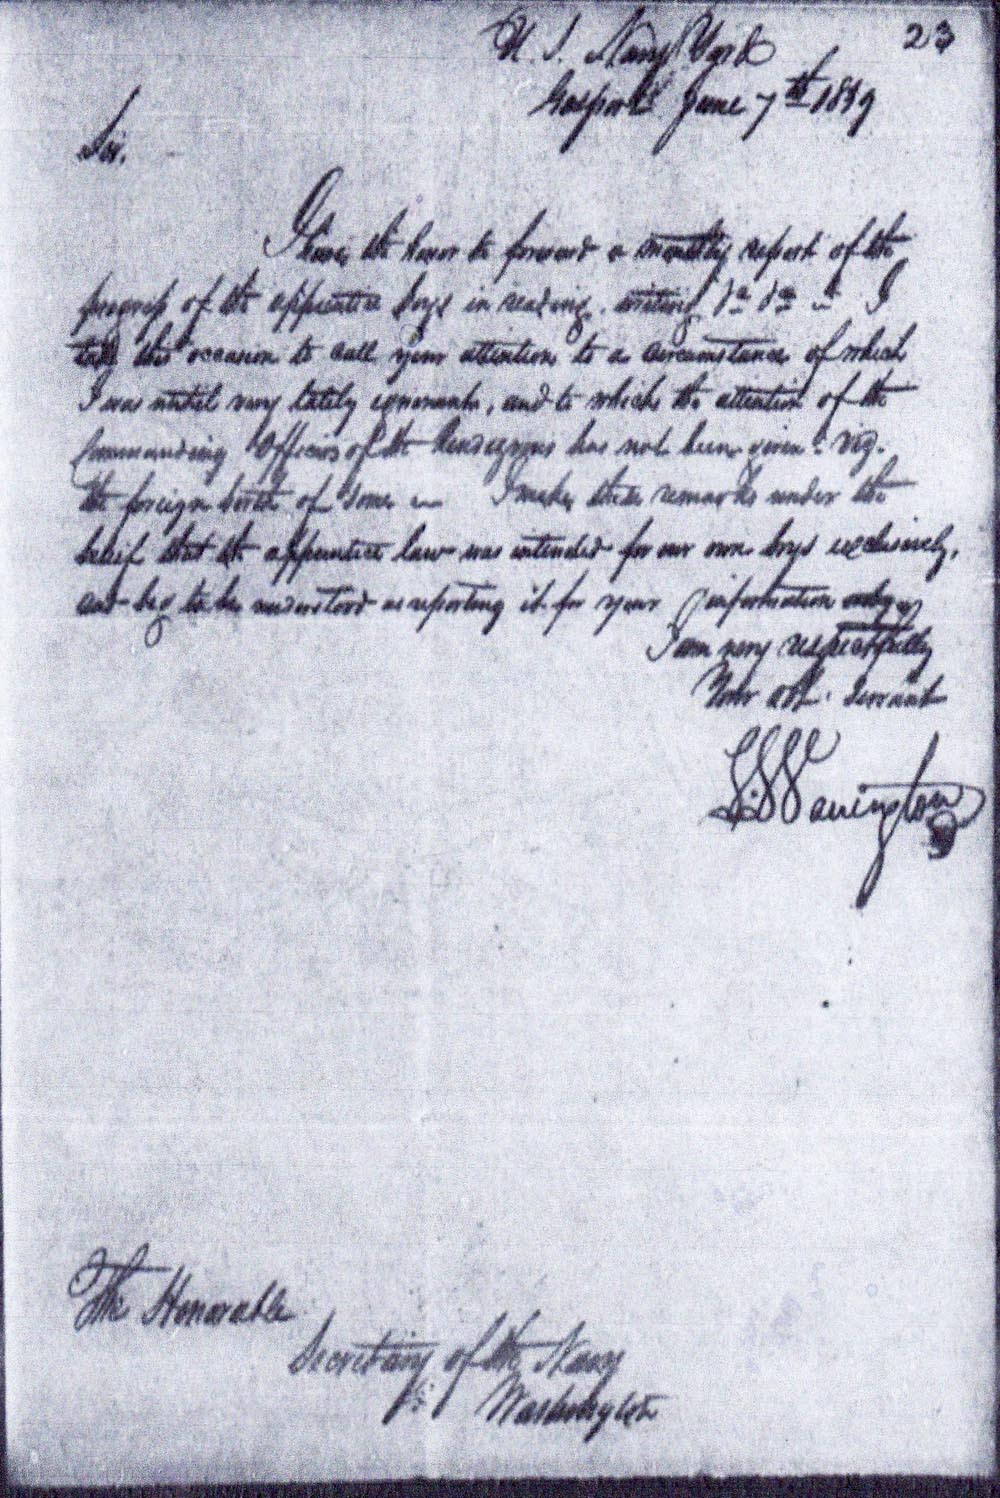 23
U. S. Navy Yard
Gosport June 7th 1839
Sir.
I have the honor to forward a monthly report of the
progress of the apprentice boys in reading, writing &a &a I
take this occasion to call your attention to a circumstance of which
I was until very lately ignorant, and to which the attention of the
Commanding Officers of the Rendezvous has not been given. Viz.
the foreign birth of some I make these remarks under the
belief that the apprentice law was intended for our own boys exclusively,
and beg to be understood as reporting it for your information only
I am very respectfully
Your obt. servant
L. Warrington
The Honorable
Secretary of the Navy
Washington